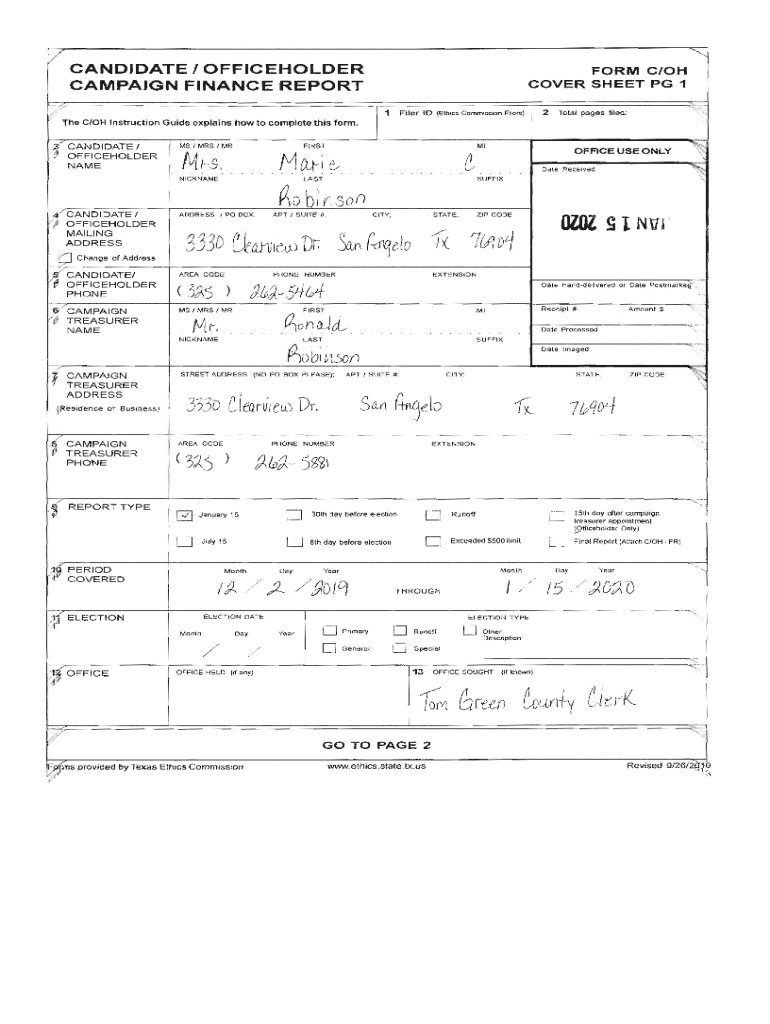 CANDIDATE / OFFICEHOLDER
CAMPAIGN FINANCE REPORT
FORM C/OH
COVER SHEET PG 1
The C/OH Instruction Guide explains how to complete this form.
1 Filer ID (Ethics Commission Filers)
2 Total pages filed:
3 CANDIDATE / OFFICEHOLDER NAME
MS / MRS / MR FIRST MI
Mrs. Marie C
NICKNAME LAST SUFFIX
Robinson
OFFICE USE ONLY
Date Received
JAN 15 2020
4 CANDIDATE / OFFICEHOLDER MAILING ADDRESS
Change of Address
ADDRESS / PO BOX; APT / SUITE #; CITY; STATE; ZIP CODE
3330 Clearview Dr. San Angelo Tx 76904
5 CANDIDATE/ OFFICEHOLDER PHONE
AREA CODE PHONE NUMBER EXTENSION
(325) 262-5464
Date Hand-delivered or Date Postmarked
6 CAMPAIGN TREASURER NAME
MS / MRS / MR FIRST MI
Mr. Ronald
NICKNAME LAST SUFFIX
Robinson
Receipt # Amount $
Date Processed
Date Imaged
7 CAMPAIGN TREASURER ADDRESS
(Residence or Business)
STREET ADDRESS (NO PO BOX PLEASE); APT / SUITE #; CITY; STATE; ZIP CODE
3330 Clearview Dr. San Angelo Tx 76904
8 CAMPAIGN TREASURER PHONE
AREA CODE PHONE NUMBER EXTENSION
(325) 262-5881
9 REPORT TYPE
January 15 30th day before election Runoff 15th day after campaign treasurer appointment (Officeholder Only)
July 15 8th day before election Exceeded $500 limit Final Report (Attach C/OH - FR)
10 PERIOD COVERED
Month Day Year Month Day Year
12 / 2 / 2019 THROUGH 1 / 15 / 2020
11 ELECTION
ELECTION DATE ELECTION TYPE
Month Day Year Primary Runoff Other Description
/ / General Special
12 OFFICE
OFFICE HELD (if any)
13 OFFICE SOUGHT (if known)
Tom Green County Clerk
GO TO PAGE 2
Forms provided by Texas Ethics Commission www.ethics.state.tx.us Revised 9/26/2019